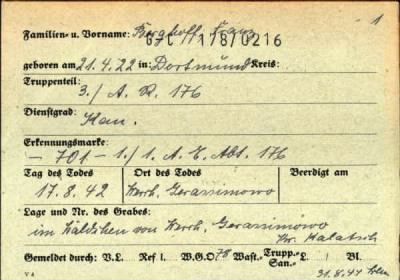 1
Familien- u. Vorname: Berghoff, Franz
67L 1/8/0216
geboren am 21.4.22 in: Dortmund Kreis:
Truppenteil:
3./ A. R. 176
Dienstgrad:
Kan.
Erkennungsmarke:
– 701 – 1./ 1. A. E. Abt. 176
Tag des Todes Ort des Todes Beerdigt am
17.8.42 Werch. Gerassimowo
Lage und Nr. des Grabes:
im Wäldchen von Werch. Gerassimowo
Kr. Kalatsch
Gemeldet durch: V.L. Ref L W.G.O. 78 Wast. Trupp.- San.- L. Bl.
V A 31.8.44